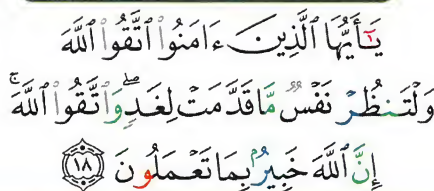 يَٰٓأَيُّهَا ٱلَّذِينَ ءَامَنُوا۟ ٱتَّقُوا۟ ٱللَّهَ
وَلْتَنظُرْ نَفْسٌ مَّا قَدَّمَتْ لِغَدٍ ۖ وَٱتَّقُوا۟ ٱللَّهَ ۚ
إِنَّ ٱللَّهَ خَبِيرٌۢ بِمَا تَعْمَلُونَ ١٨